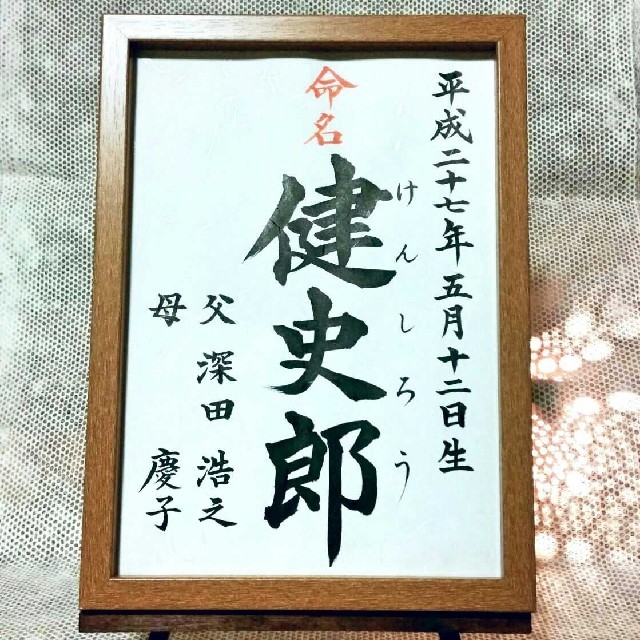 平成二十七年五月十二日生
命名
健史郎
けんしろう
父 深田 浩之
母 慶子